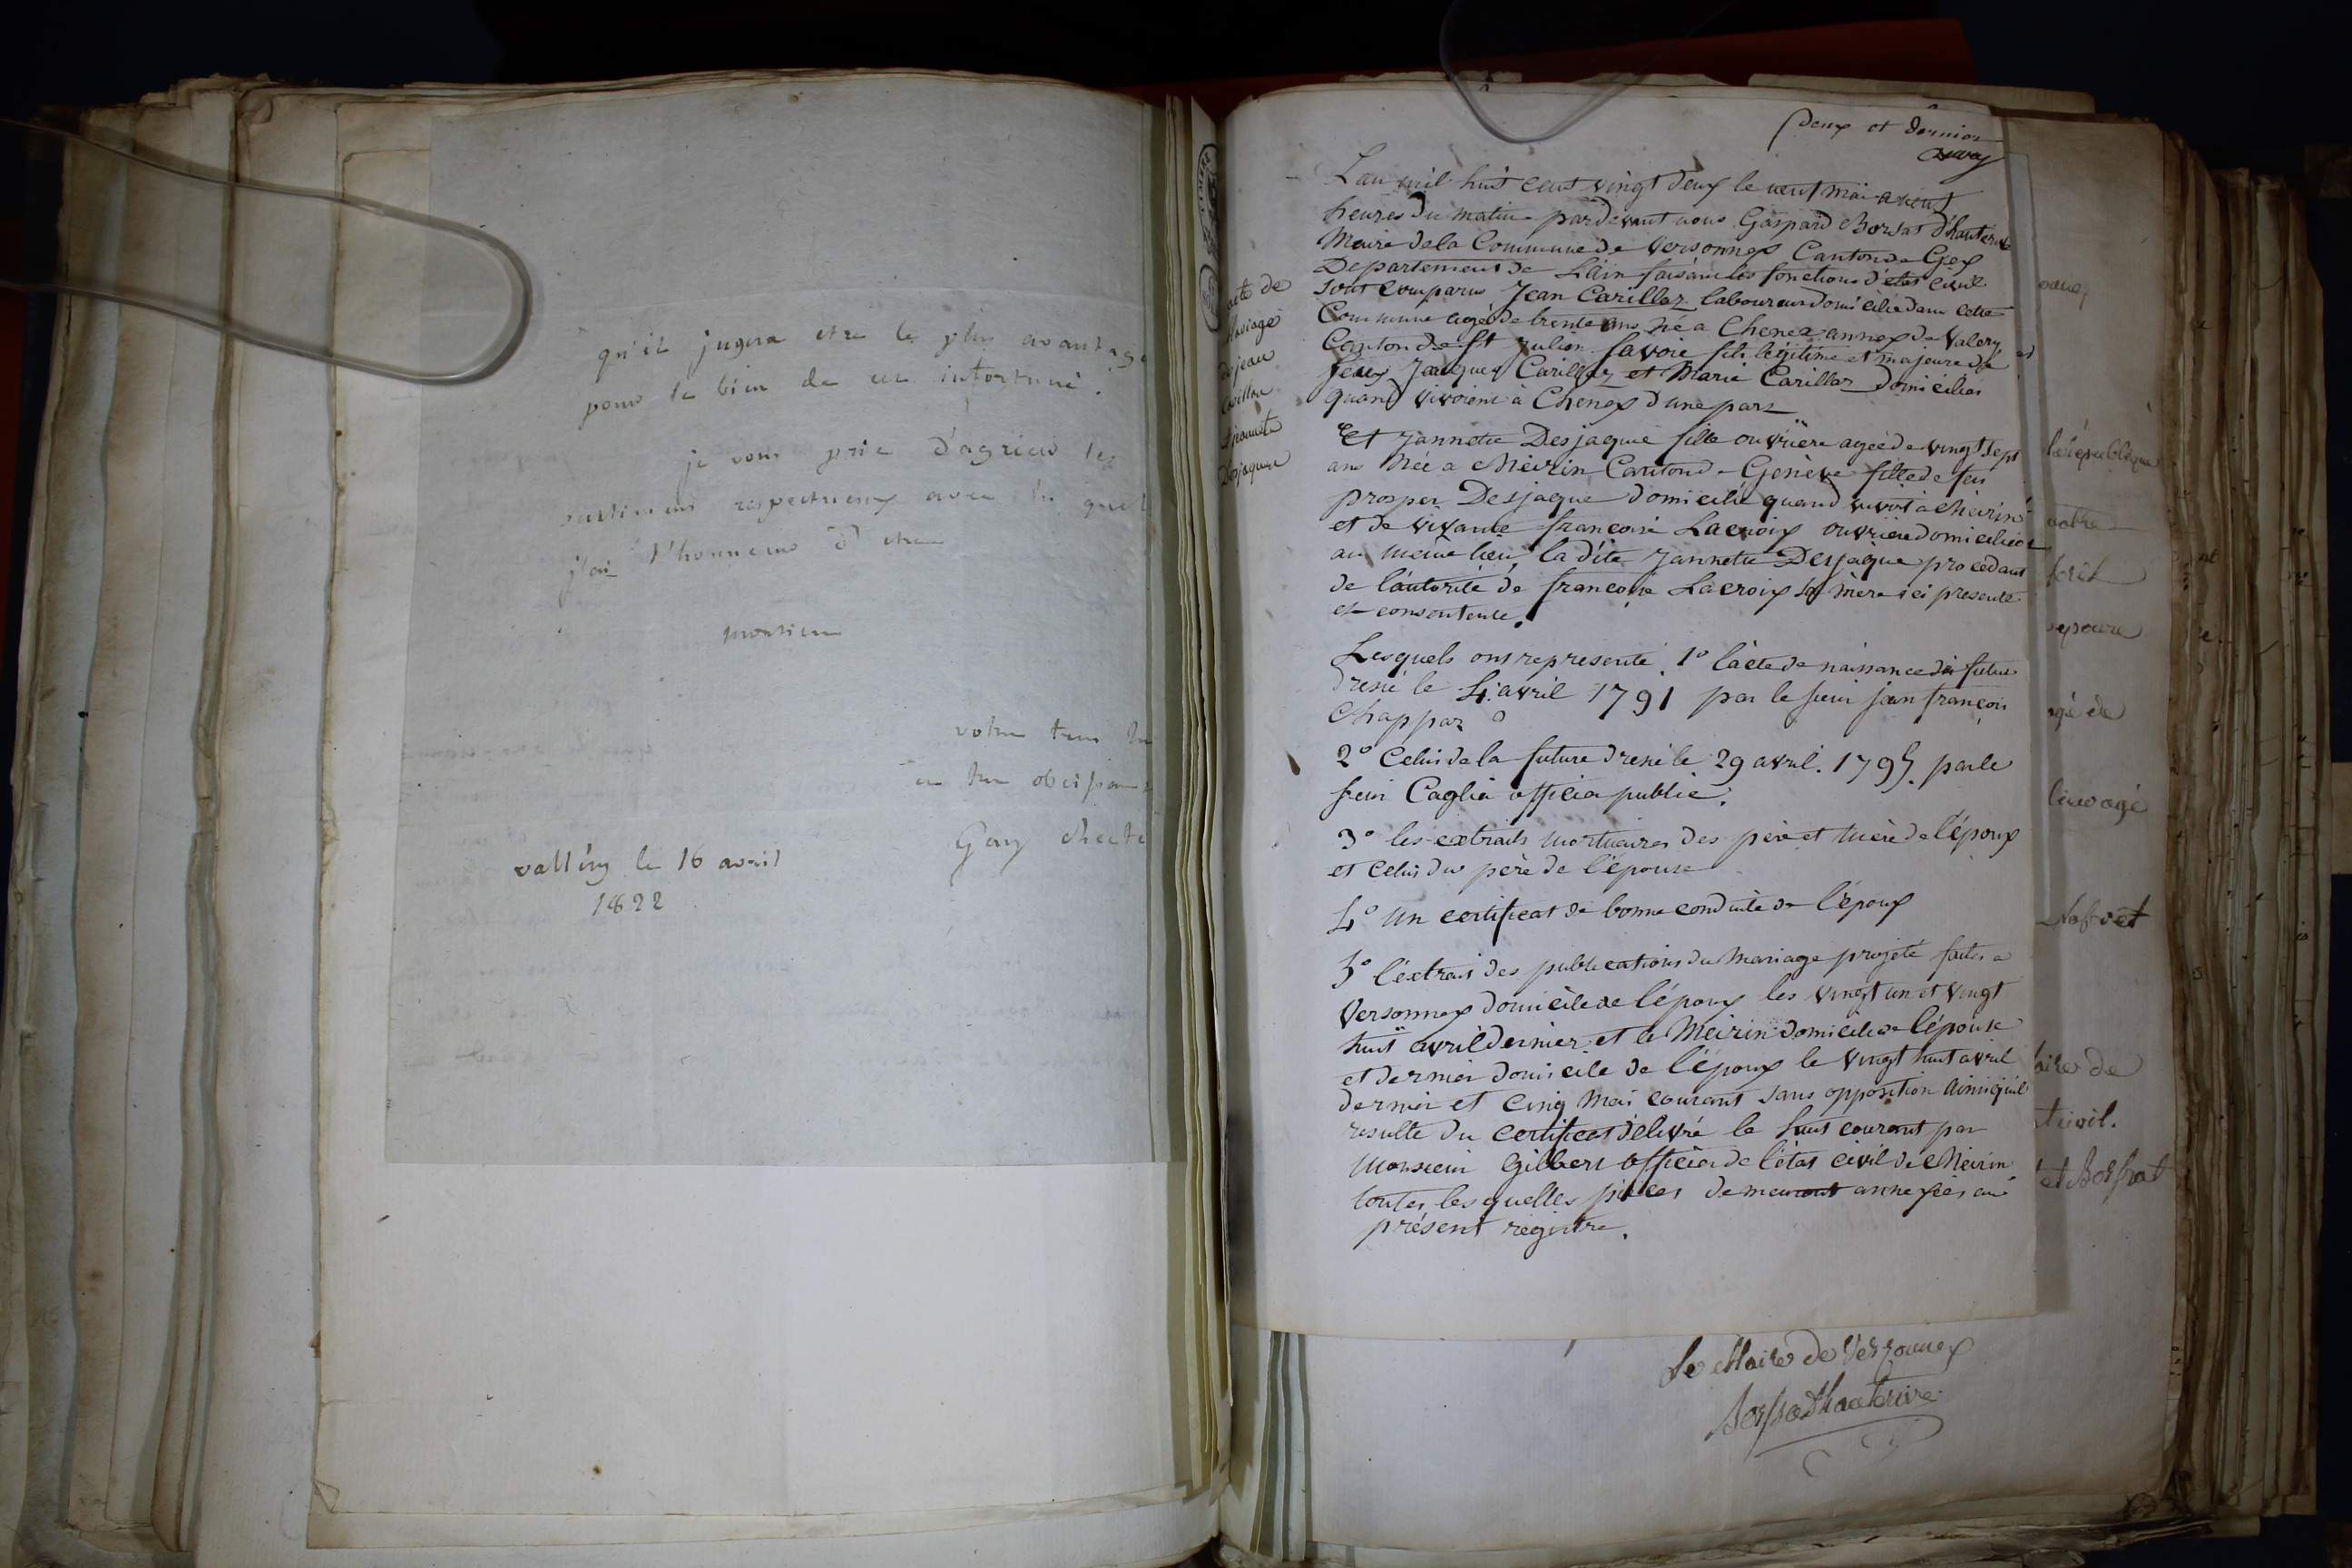 qu'il jugera etre le plus avantage
pour le bien de cet infortuné.
je vous prie d'agréer les
sentimens respectueux avec les quel
j'ai l'honneur d'etre
monsieur
votre tres hu
et tres obeissant
Gay
valléry le 16 avril
1822
acte de
Mariage
de jean
Carillon
et jannette
Desjaques
deux et dernier
L'an mil huit cent vingt deux le neuf mai a neuf
heures du matin pardevant nous Gaspard Borsat d'hauterive
Maire de la Commune de Versonnex Canton de Gex
Departement de L'ain faisant les fonctions d'etat civil
sont comparus Jean Carillaz laboureur domicilié dans cette
Commune agé de trente ans né a Chenex annex de Valery
Canton de St Julien Savoie fils légitime et majeure de
feus Jacques Carillaz et Marie Carillaz domiciliés
quand vivoient à Chenex d'une part
Et Jannette Desjaque fille ouvrière agée de vingt sept
ans née a Meirin Canton de Genève fille de feu
prosper Desjaque domicilié quand vivoit à Meirin
et de vivante francoise Lacroix ouvriere domiciliée
au meme lieu, la dite Jannette Desjaque procedant
de l'autorité de francoise Lacroix sa mère ici presente
et consentente.
Lesquels ont representé 1º l'acte de naissance du futur
dresé le 4 avril 1791 par le sieur jean françois
Chappaz
2º Celui de la future dresé le 29 avril. 1795. par le
sieur Caglia officier public.
3º les extraits mortuaires des père et mère de l'époux
et celui du père de l'épouse
4º un certificat de bonne conduite de l'époux
5º l'extrait des publications du mariage projeté faites a
Versonnex domicile de l'époux les vingt un et vingt
huit avril dernier et a Meirin domicile de l'épouse
et dernier domicile de l'époux le vingt huit avril
dernier et cinq mai courant sans opposition ainsi qu'il
resulte du certificat délivré le huit courant par
Monsieur Gilbert officier de l'état civil de Meirin
toutes lesquelles pièces demeurent annexées au
présent registre.
Le Maire de Versonnex
Borsat D'hauterive
votre
épouse
agé de
aire de
t civil.
et Borsat